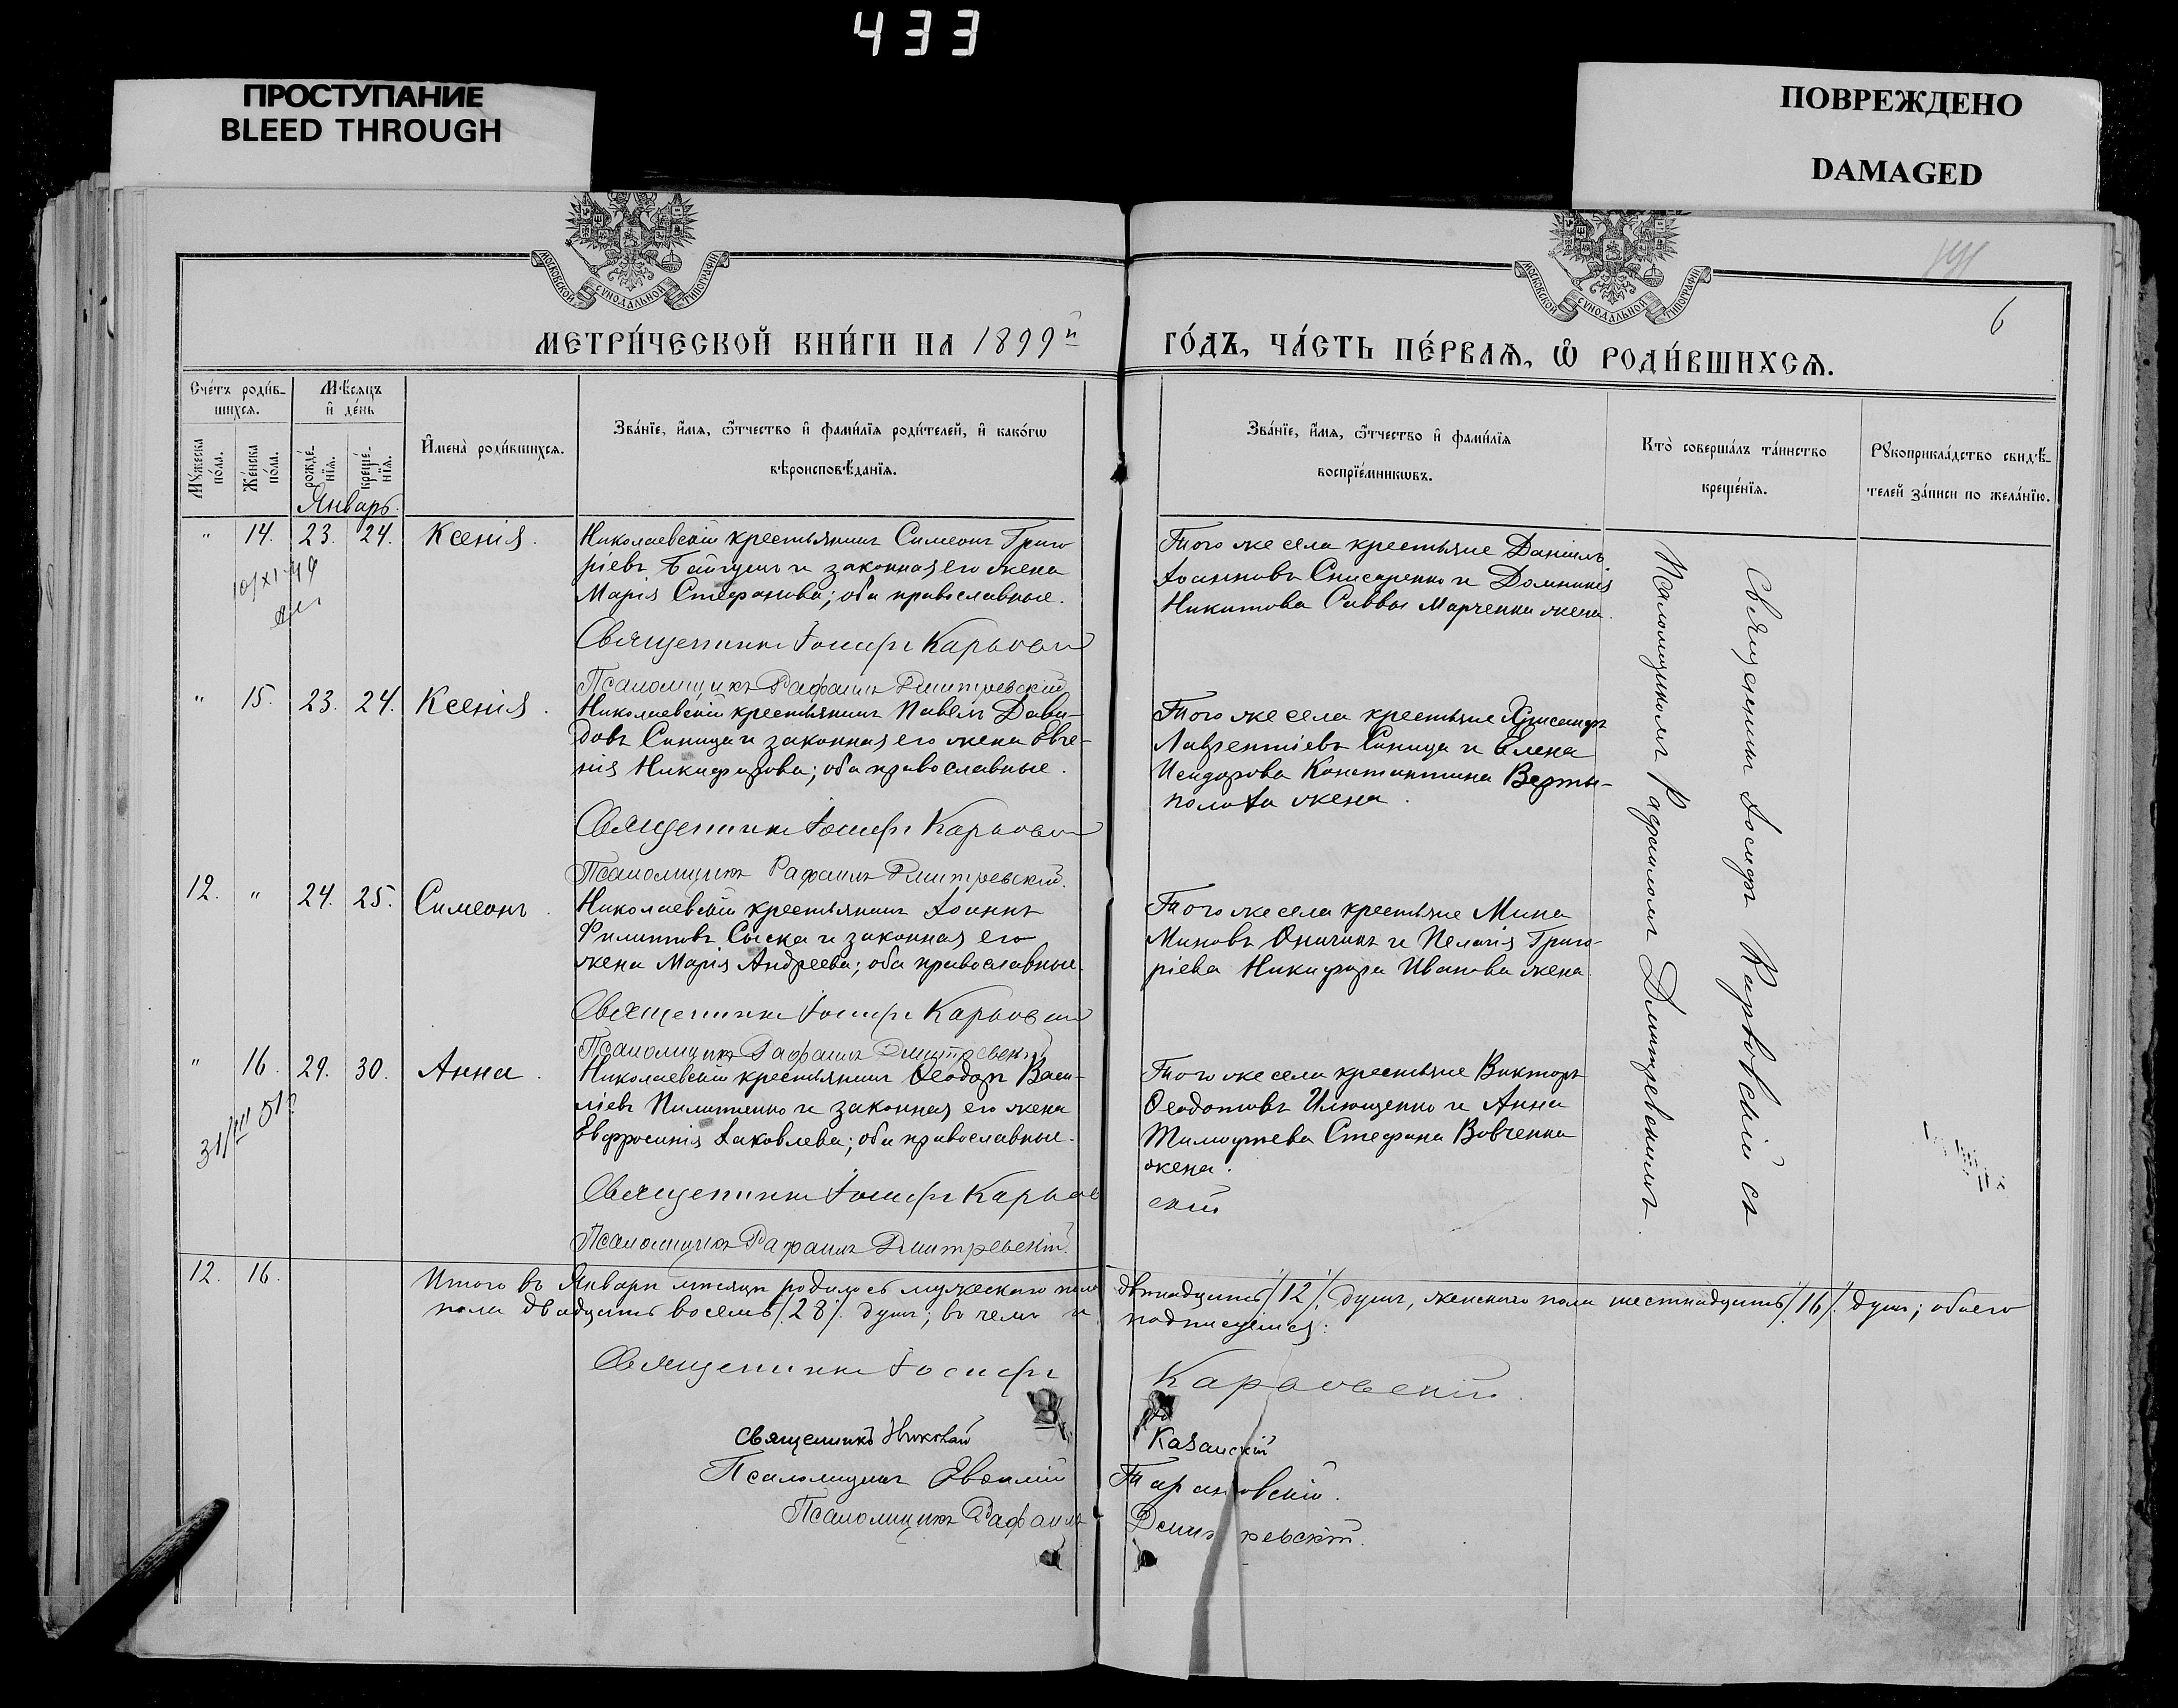 433
ПРОСТУПАНИЕ
BLEED THROUGH
ПОВРЕЖДЕНО
DAMAGED
МОСКОВСКОЙ СѴНОДАЛЬНОЙ ТИПОГРАФІИ
МОСКОВСКОЙ СѴНОДАЛЬНОЙ ТИПОГРАФІИ
6
МЕТРИ́ЧЕСКОЙ КНИ́ГИ НА 1899й
ГО́ДЪ, ЧА́СТЬ ПЕ́РВАѦ, Ѿ РОДИ́ВШИХСѦ.
Сче́тъ роди́в-
шихсѧ.
Мѣ́сѧцъ
и҆ де́нь
Мꙋ́жеска
по́ла.
Же́нска
по́ла.
рожде́-
нїѧ.
креще́-
нїѧ.
И҆мена̀ роди́вшихсѧ.
Зва́нїе, и҆́мѧ, ѻ҆́тчество и҆ фами́лїѧ роди́телей, и҆ како́гѡ
вѣроисповѣ́данїѧ.
Зва́нїе, и҆́мѧ, ѻ҆́тчество и҆ фами́лїѧ
воспрїе́мникѡвъ.
Кто̀ соверша́лъ та́инство
креще́нїѧ.
Рꙋкоприкла́дство свидѣ́-
телей за́писи по жела́нїю.
Январь.
" 14. 23. 24. Ксенія.
Николаевскій крестьянинъ Симеонъ Григо
ріевъ Байгушъ и законная его жена
Марія Стефанова; оба православные.
Священникъ Іосифъ Карповскій
Псаломщикъ Рафаилъ Дмитревскій
Того же села крестьяне Даніилъ
Іоанновъ Снисаренко и Домникія
Никитова Саввы Марченка жена.
" 15. 23. 24. Ксенія.
Николаевскій крестьянинъ Павелъ Дави-
довъ Синица и законная его жена Евге-
нія Никифорова; оба православные.
Священникъ Іосифъ Карповскій
Псаломщикъ Рафаилъ Дмитревскій.
Того же села крестьяне Хрисанфъ
Лаврентіевъ Синица и Елена
Исидорова Константина Верты-
полоха жена.
12. " 24. 25. Симеонъ.
Николаевскій крестьянинъ Іоаннъ
Филиповъ Соска и законная его
жена Марія Андреева; оба православные.
Священникъ Іосифъ Карповскій
Псаломщикъ Рафаилъ Дмитревскій
Того же села крестьяне Мина
Миновъ Оничикъ и Пелагія Григо-
ріева Никифора Иванова жена.
" 16. 29. 30. Анна.
Николаевскій крестьянинъ Ѳеодоръ Васи-
ліевъ Пилипенко и законная его жена
Евфросинія Іаковлева; оба православные.
Священникъ Іосифъ Карпов
скій
Псаломщикъ Рафаилъ Дмитревскій.
Того же села крестьяне Викторъ
Ѳеодотовъ Илющенко и Анна
Тимоѳеева Стефана Вовченка
жена.
Священникъ Іосифъ Карповскій съ
Псаломщикомъ Рафаиломъ Дмитревскимъ.
12. 16.
Итого въ Январѣ мѣсяцѣ родилось мужескаго пола двѣнадцать /12/ душъ, женскаго пола шестнадцать /16/ душъ; обоего
пола двадцать восемь /28/ душъ; въ чемъ и подписуемся:
Священникъ Іосифъ Карповскій.
Священникъ Николай Казанскій
Псаломщикъ Евѳимій Тарановскій.
Псаломщикъ Рафаилъ Дмитревскій.